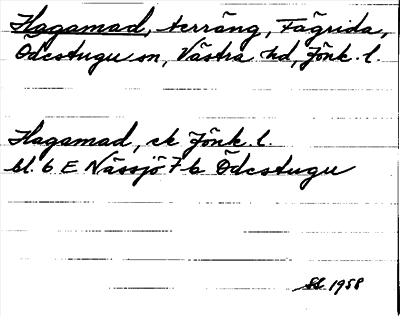 Hagamad, terräng, Fägrida,
Ödestugu sn, Västra hd, Jönk. l.
Hagamad, ek Jönk. l.
bl. 6 E Nässjö 7 b Ödestugu
1958